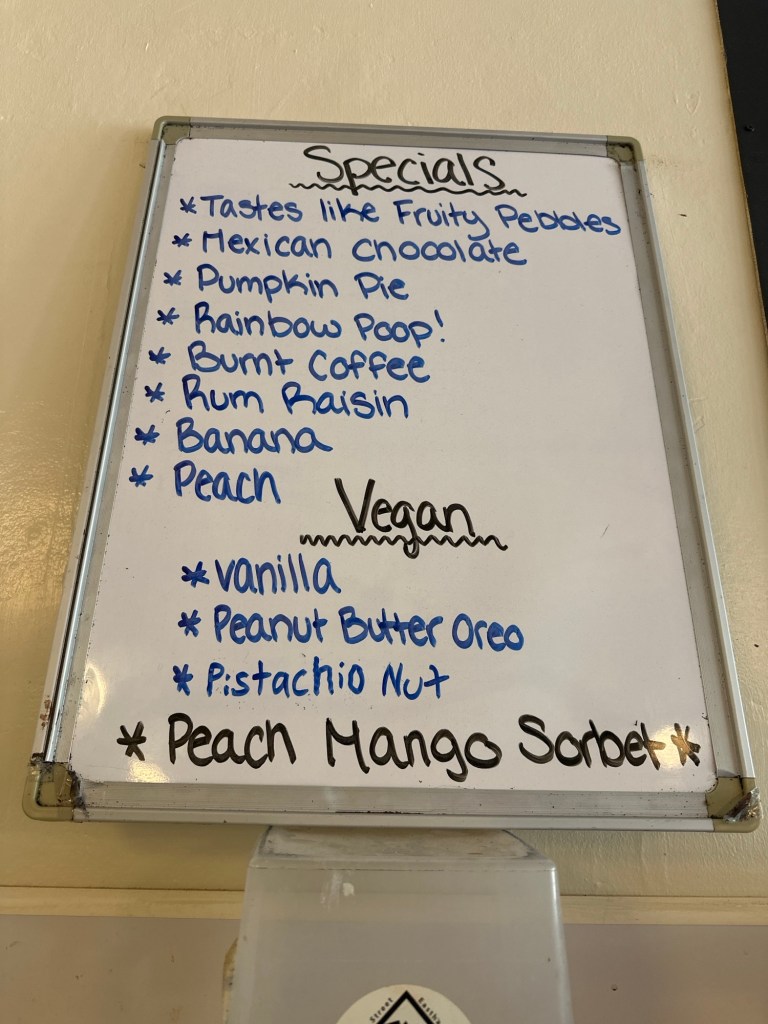 Specials
*Tastes like Fruity Pebbles
*Mexican chocolate
* Pumpkin Pie
* Rainbow Poop!
* Burnt Coffee
* Rum Raisin
* Banana
* Peach
Vegan
*vanilla
* Peanut Butter Oreo
* Pistachio Nut
* Peach Mango Sorbet *
Street